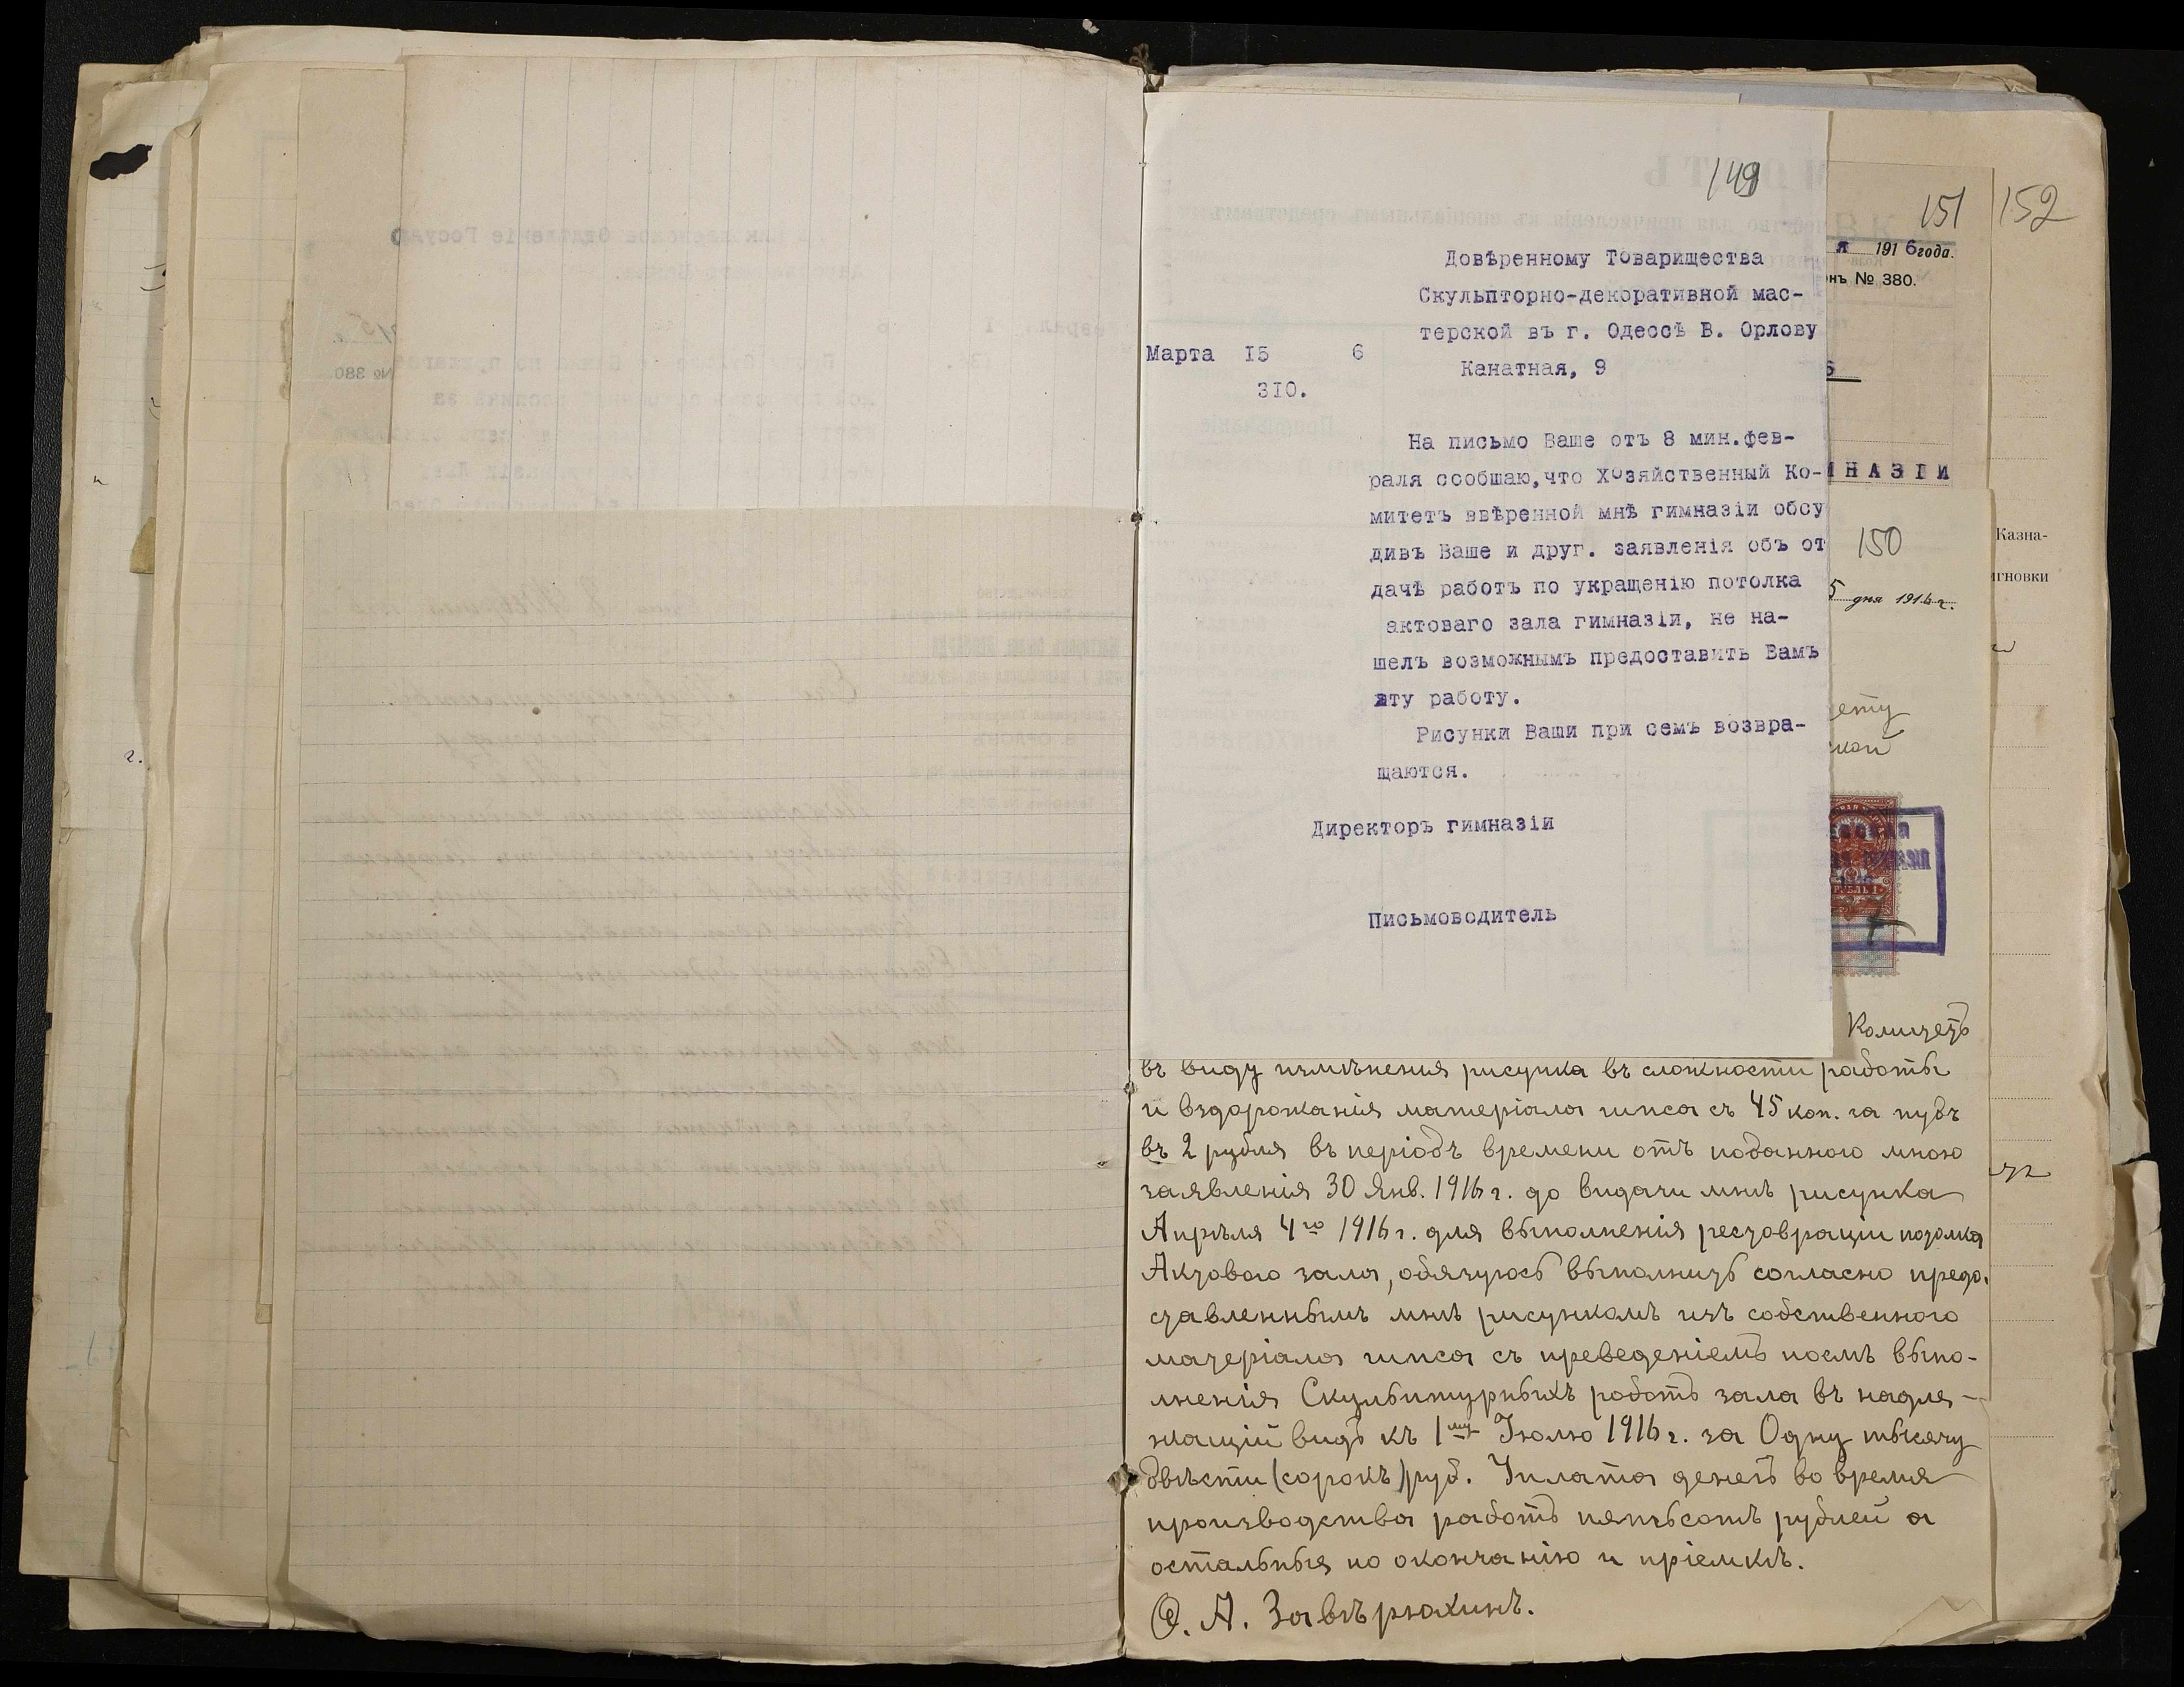 149
Довѣренному Товарищества
Скульпторно-декоративной мас-
терской въ г. Одессѣ В. Орлову
Канатная, 9
Марта 15 6
310.
На письмо Ваше отъ 8 мин.фев-
раля сообшаю,что Хозяйственный Ко-
митетъ ввѣренной мнѣ гимназіи обсу
дивъ Ваше и друг. заявленія объ от
дачѣ работъ по укращенію потолка
актоваго зала гимназіи, не на-
шелъ возможнымъ предоставить Вамъ
эту работу.
Рисунки Ваши при семъ возвра-
щаются.
Директоръ гимназіи
Письмоводитель
151
152
я 1916 года.
нъ № 380.
НАЗІИ
150
5 дня 1916 г.
Казна-
игновки
РУБЛЬ 1
Комитетъ
въ виду измѣненія рисунка въ сложности работы
и вздорожанія матеріала гипса съ 45 коп. за пудъ
въ 2 рубля въ періодъ времени отъ поданного мною
заявленія 30 Янв. 1916 г. до видачи мнѣ рисунка
Апрѣля 4го 1916 г. для выполненія реставраціи потолка
Актового зала, обязуюсь выполнить согласно предо-
ставленнымъ мнѣ рисункомъ изъ собственного
матеріала гипса съ преведеніемъ послѣ выпо-
лненія Скульптурныхъ работъ зала въ надле-
жащій видъ къ 1му Іюлю 1916 г. за Одну тысячу
двѣсти (сорокъ) руб. Уплата денегъ во время
производства работъ пятьсотъ рублей а
остальныя по окончанію и пріемкѣ.
Ѳ. А. Завѣрюхинъ.